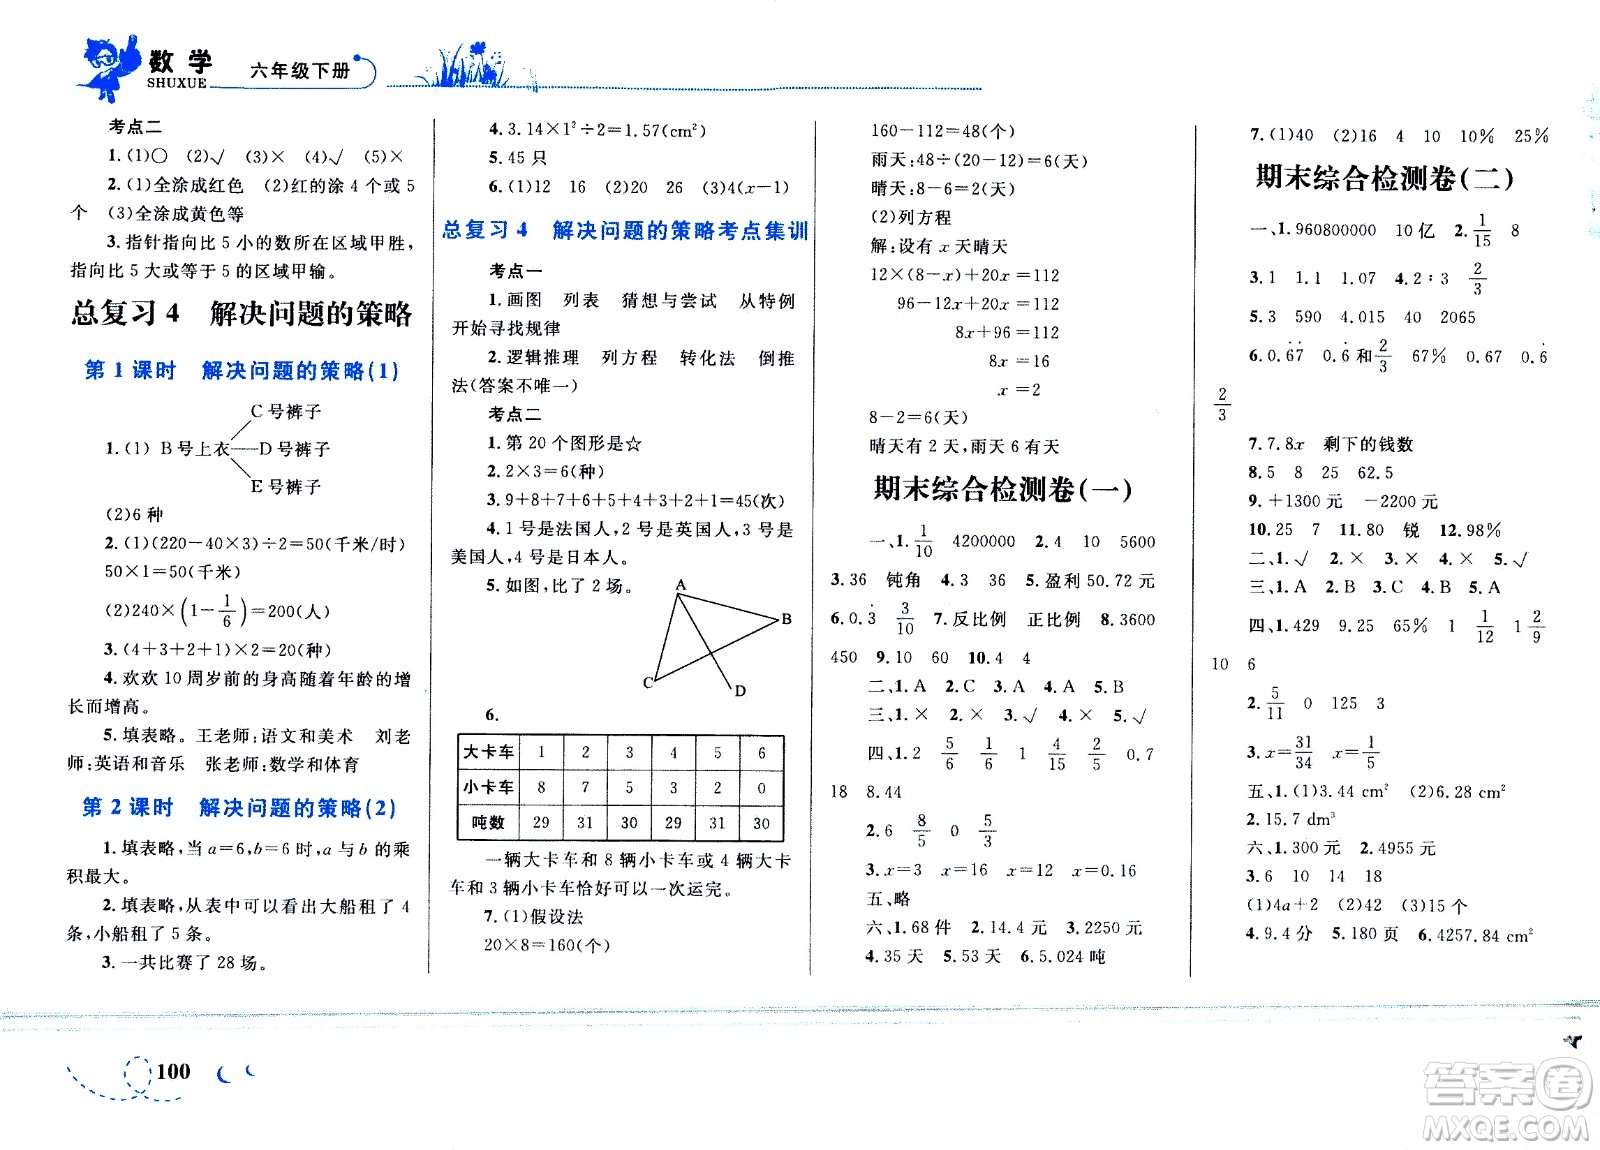 数学
SHUXUE
六年级下册
考点二
1.(1)○ (2)√ (3)× (4)√ (5)×
2.(1)全涂成红色 (2)红的涂4个或5
个 (3)全涂成黄色等
3.指针指向比5小的数所在区域甲胜,
指向比5大或等于5的区域甲输。
总复习4 解决问题的策略
第1课时 解决问题的策略(1)
C号裤子
1.(1) B号上衣—D号裤子
E号裤子
(2)6种
2.(1)(220-40×3)÷2=50(千米/时)
50×1=50(千米)
(2)240×(1-1/6)=200(人)
3.(4+3+2+1)×2=20(种)
4.欢欢10周岁前的身高随着年龄的增
长而增高。
5.填表略。王老师:语文和美术 刘老
师:英语和音乐 张老师:数学和体育
第2课时 解决问题的策略(2)
1.填表略,当a=6,b=6时,a与b的乘
积最大。
2.填表略,从表中可以看出大船租了4
条,小船租了5条。
3.一共比赛了28场。
4.3.14×1²÷2=1.57(cm²)
5.45只
6.(1)12 16 (2)20 26 (3)4(x-1)
总复习4 解决问题的策略考点集训
考点一
1.画图 列表 猜想与尝试 从特例
开始寻找规律
2.逻辑推理 列方程 转化法 倒推
法(答案不唯一)
考点二
1.第20个图形是☆
2.2×3=6(种)
3.9+8+7+6+5+4+3+2+1=45(次)
4.1号是法国人,2号是英国人,3号是
美国人,4号是日本人。
5.如图,比了2场。
A
B
C
D
6.
大卡车 1 2 3 4 5 6
小卡车 8 7 5 3 2 0
吨数 29 31 30 29 31 30
一辆大卡车和8辆小卡车或4辆大卡
车和3辆小卡车恰好可以一次运完。
7.(1)假设法
20×8=160(个)
160-112=48(个)
雨天:48÷(20-12)=6(天)
晴天:8-6=2(天)
(2)列方程
解:设有x天晴天
12×(8-x)+20x=112
96-12x+20x=112
8x+96=112
8x=16
x=2
8-2=6(天)
晴天有2天,雨天6有天
期末综合检测卷(一)
一、1.1/10 4200000 2.4 10 5600
3.36 钝角 4.3 36 5.盈利50.72元
6.0.3̇ 3/10 7.反比例 正比例 8.3600
450 9.10 60 10.4 4
二、1.A 2.C 3.A 4.A 5.B
三、1.× 2.× 3.√ 4.× 5.√
四、1.2 5/6 1/6 1 4/15 2/5 0.7
18 8.44
2.6 8/5 0 5/3
3.x=3 x=16 x=12 x=0.16
五、略
六、1.68件 2.14.4元 3.2250元
4.35天 5.53天 6.5.024吨
7.(1)40 (2)16 4 10 10% 25%
期末综合检测卷(二)
一、1.960800000 10亿 2.1/15 8
3.1 1.1 1.07 4.2:3 2/3
5.3 590 4.015 40 2065
6.0.6̇7̇ 0.6̇和2/3 67% 0.67 0.6̇
2/3
7.7.8x 剩下的钱数
8.5 8 25 62.5
9.+1300元 -2200元
10.25 7 11.80 锐 12.98%
二、1.√ 2.× 3.× 4.× 5.√
三、1.A 2.B 3.B 4.A 5.A
四、1.429 9.25 65% 1 1/12 1 2/9
10 6
2.5/11 0 125 3
3.x=31/34 x=1/5
五、1.(1)3.44 cm² (2)6.28 cm²
2.15.7 dm³
六、1.300元 2.4955元
3.6 10 14 18
(1)4a+2 (2)42 (3)15个
4.9.4分 5.180页 6.4257.84 cm²
100
答案卷
MXQE.COM